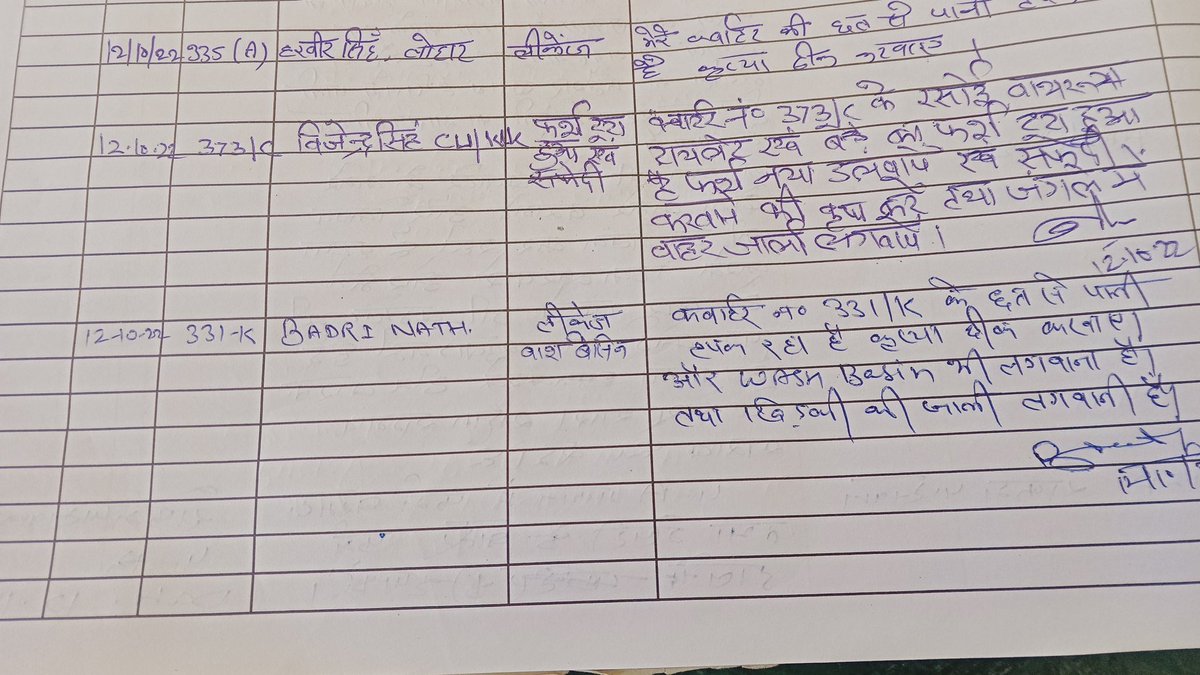 मेरे क्वार्टर की छत से पानी
12/10/22 335 (A) हरवीर सिंह, लोहार लीकेज
है कृप्या ठीक करवाए
12.10.22 373/C विजेन्द्र सिंह CLI/KK फर्श टूटा क्वार्टर नं० 373/C के रसोई बाथरूम
हुआ एवं टायलेट एवं का फर्श टूटा हुआ
सफेदी है फर्श नया डलवाए एवं सफेदी
करवाने की कृपा करें तथा जंगल में
बाहर जाली लगवाये।
12.10.22
12-10-22 331-K BADRI NATH. लीकेज क्वार्टर न० 331/K के छत से पानी
वाश बेसिन टपक रहा है कृप्या ठीक करवाए।
और Wash Basin भी लगवाना है।
तथा खिड़की की जाली लगवानी है।